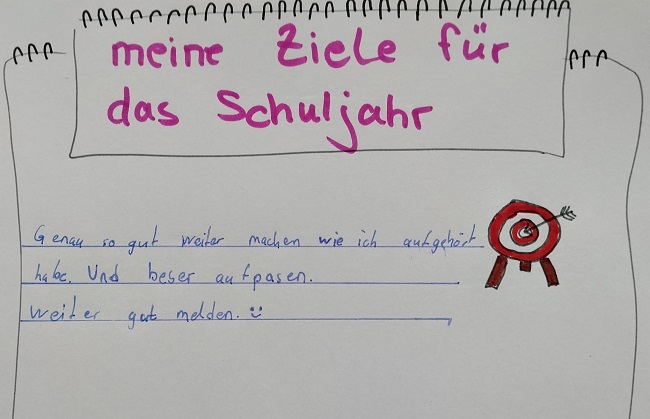 meine Ziele für
das Schuljahr
Genau so gut weiter machen wie ich aufgehört
habe. Und beser aufpasen.
Weiter gut melden. :)